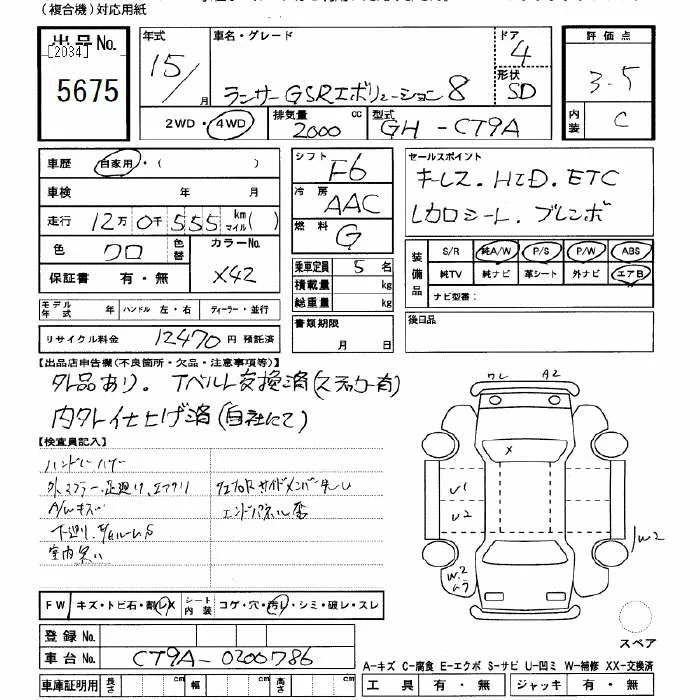 (複合機)対応用紙
出品No. [2034] 5675
年式 15/ 月
車名・グレード ランサー GSRエボリューション 8
ドア 4
形状 SD
評価点 3.5
内装 C
2WD・4WD
排気量 2000 cc
型式 GH-CT9A
車歴 自家用・( )
車検 年 月
走行 12万 0千 555 km マイル( )
色 クロ 色替
カラーNo. X42
保証書 有・無
シフト F6
冷房 AAC
燃料 G
乗車定員 5 名
積載量 kg
総重量 kg
セールスポイント
キーレス. HID. ETC
レカロシート. ブレンボ
装備品 S/R 純A/W P/S P/W ABS
純TV 純ナビ 革シート 外ナビ エアB
ナビ型番:
モデル年式 年 ハンドル 左・右 ディーラー・並行
書類期限 月 日
後日品
リサイクル料金 12470 円 預託済
【出品店申告欄(不良箇所・欠品・注意事項等)】
外品あり. Tベルト交換済(ステッカー有)
内タレイ仕上げ済(自社にて)
【検査員記入】
A/Wキズ
エンドパネル
FW キズ・トビ石・割レ・X シート内装 コゲ・穴・汚レ・シミ・破レ・スレ
ワレ A2
X
U1
U2
W2
W2
スペア
登録No.
車台No. CT9A-0200786
A-キズ C-腐食 E-エクボ S-サビ U-凹ミ W-補修 XX-交換済
車庫証明用 長さ cm 幅 cm 高さ cm
工具 有・無 ジャッキ 有・無